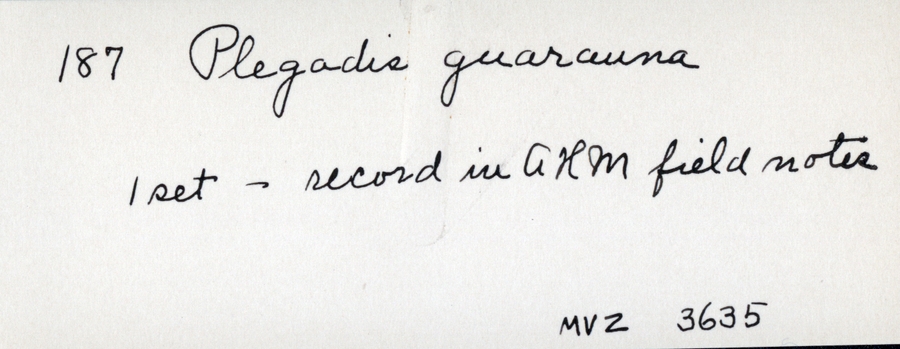 187 Plegadis guarauna
1 set - record in AHM field notes
MVZ 3635